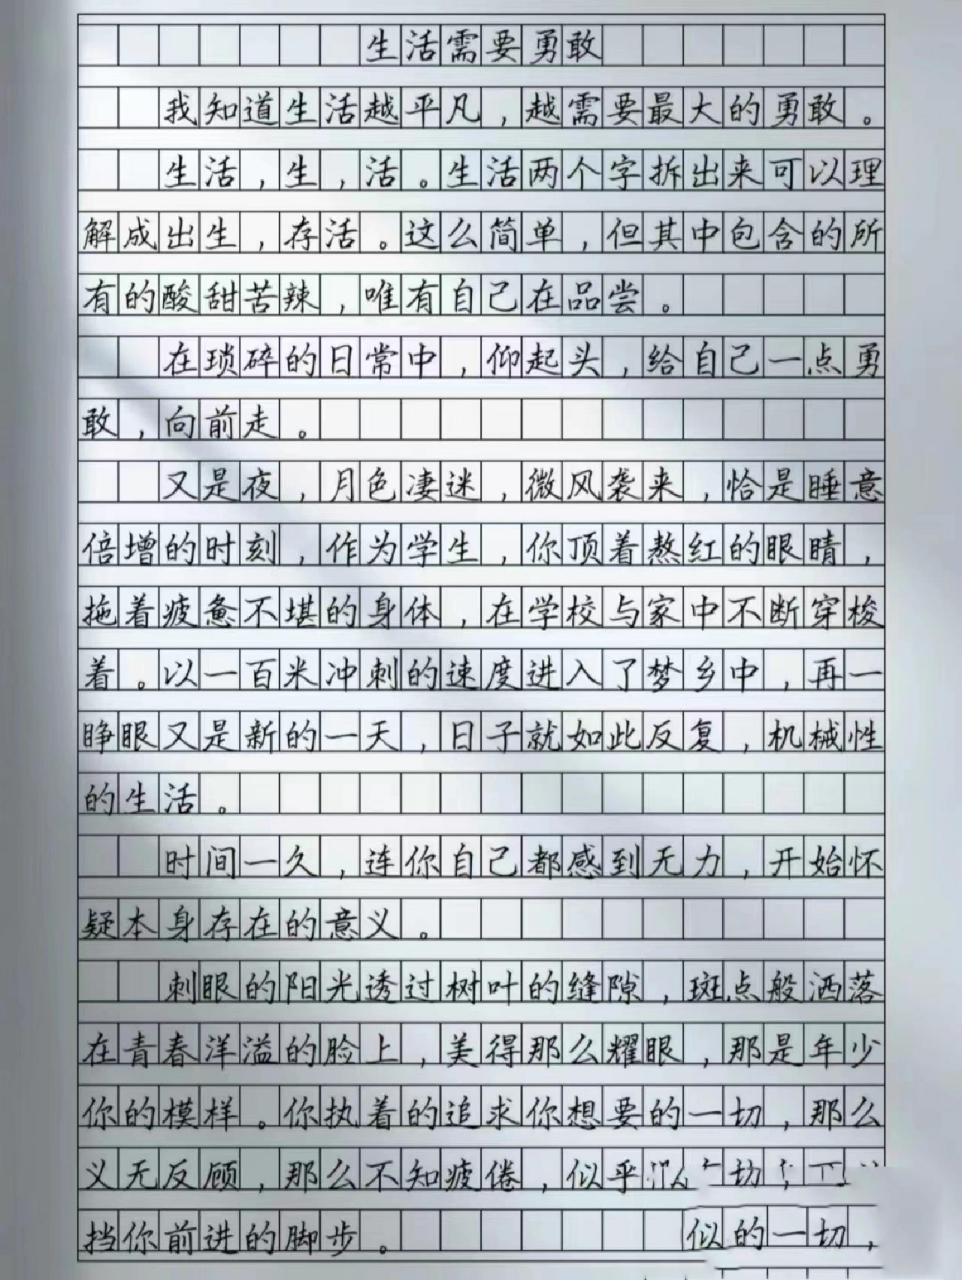 生活需要勇敢
我知道生活越平凡，越需要最大的勇敢。
生活，生，活。生活两个字拆出来可以理
解成出生，存活。这么简单，但其中包含的所
有的酸甜苦辣，唯有自己在品尝。
在琐碎的日常中，仰起头，给自己一点勇
敢，向前走。
又是夜，月色凄迷，微风袭来，恰是睡意
倍增的时刻，作为学生，你顶着熬红的眼睛，
拖着疲惫不堪的身体，在学校与家中不断穿梭
着。以一百米冲刺的速度进入了梦乡中，再一
睁眼又是新的一天，日子就如此反复，机械性
的生活。
时间一久，连你自己都感到无力，开始怀
疑本身存在的意义。
刺眼的阳光透过树叶的缝隙，斑点般洒落
在青春洋溢的脸上，美得那么耀眼，那是年少
你的模样。你执着的追求你想要的一切，那么
义无反顾，那么不知疲倦，似乎 切
挡你前进的脚步。 似的一切，